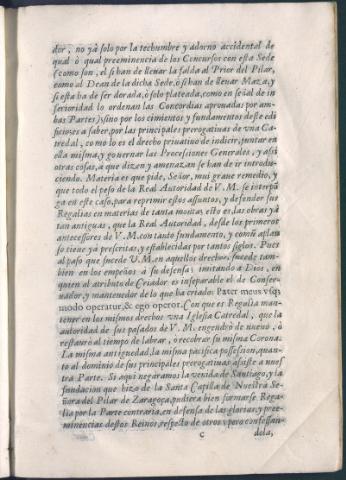 dor, no yà solo por la techumbre y adorno accidental de
qual ò qual preeminencia de los Concursos con esta Sede
(como son, el si han de lleuar la falda al Prior del Pilar,
como al Dean de la dicha Sede, ò si han de lleuar Maza, y
si esta ha de ser dorada, ò solo plateada, como en señal de in
ferioridad lo ordenan las Concordias aprouadas por am-
bas Partes) sino por los cimientos y fundamentos deste edi
ficio; es à saber, por las principales prerogatiuas de vna Ca-
tedral, como lo es el drecho priuatiuo de indicir, juntar en
ella misma, y gouernar las Processiones Generales, y assi
otras cosas, a que dizen y amenazan se han de ir introdu-
ciendo. Materia es que pide, Señor, mui graue remedio, y
que todo el peso de la Real Autoridad de V.M. se interpõ
ga en este caso, para reprimir estos assuntos, y defender sus
Regalias en materias de tanta monta; esto es, las obras yà
tan antiguas, que la Real Autoridad, desde los primeros
antecessores de V.M. con tanto fundamento, y comũ aplau
so tiene ya prescritas, y establecidas por tantos siglos. Pues
al passo que sucede V.M. en aquellos drechos, sucede tam-
bien en los empeños à su defensa; imitando à Dios, en
quien al atributo de Criador es inseparable el de Conser-
uador, y mantenedor de lo que ha criado: Pater meus vsq;
modo operatur, & ego operor. Con que es Regalia man-
tener en los mismos drechos vna Iglesia Catredal, que la
autoridad de sus pasados de V.M. engendrò de nueuo, ò
restaurò al tiempo de labrar, o recobrar su misma Corona.
La misma antiguedad, la misma pacifica possession, quan-
to al dominio de sus principales prerogatiuas assiste a nues
tra Parte. Si aqui negàramos la venida de Santiago, y la
fundacion que hizo de la Santa Capilla de Nuestra Se-
ñora del Pilar de Zaragoça, pudiera bien formarse Rega-
lia por la Parte contraria, en defensa de las glorias, y pree-
minencias destos Reinos, respeto de otros; pero confessan-
C dola,